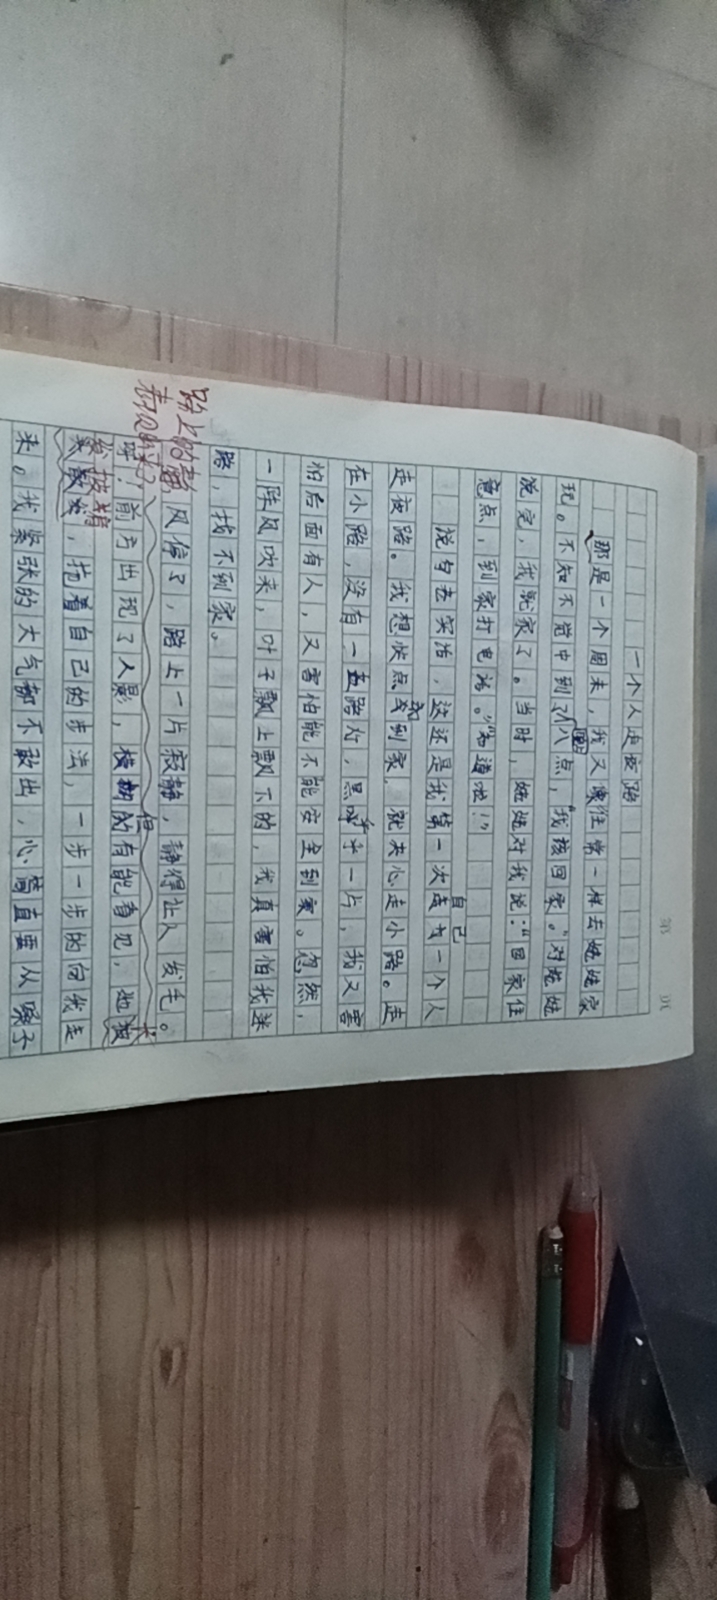 一个人走夜路
那是一个周末，我又像往常一样去她她家
玩。不知不觉中到了八点，“我该回家。”对她她
说完，我就家了。当时，她她对我说：“回家住
意点，到家打电话。”“知道啦！”
说句老实话，这还是我第一次自己一个人
走夜路。我想快点到家，就决心走小路。走
在小路，没有一盏路灯，黑乎乎一片，我又害
怕后面有人，又害怕能不能安全到家。忽然，
一阵风吹来，叶子飘上飘下的，我真害怕我迷
路，找不到家。
风停了，路上一片寂静，静得让人发毛。
前方出现了人影，模糊的但有能看见，他披
头散发，拖着自己的步法，一步一步的向我走
来。我紧张的大气都不敢出，心简直要从嗓子
路上的